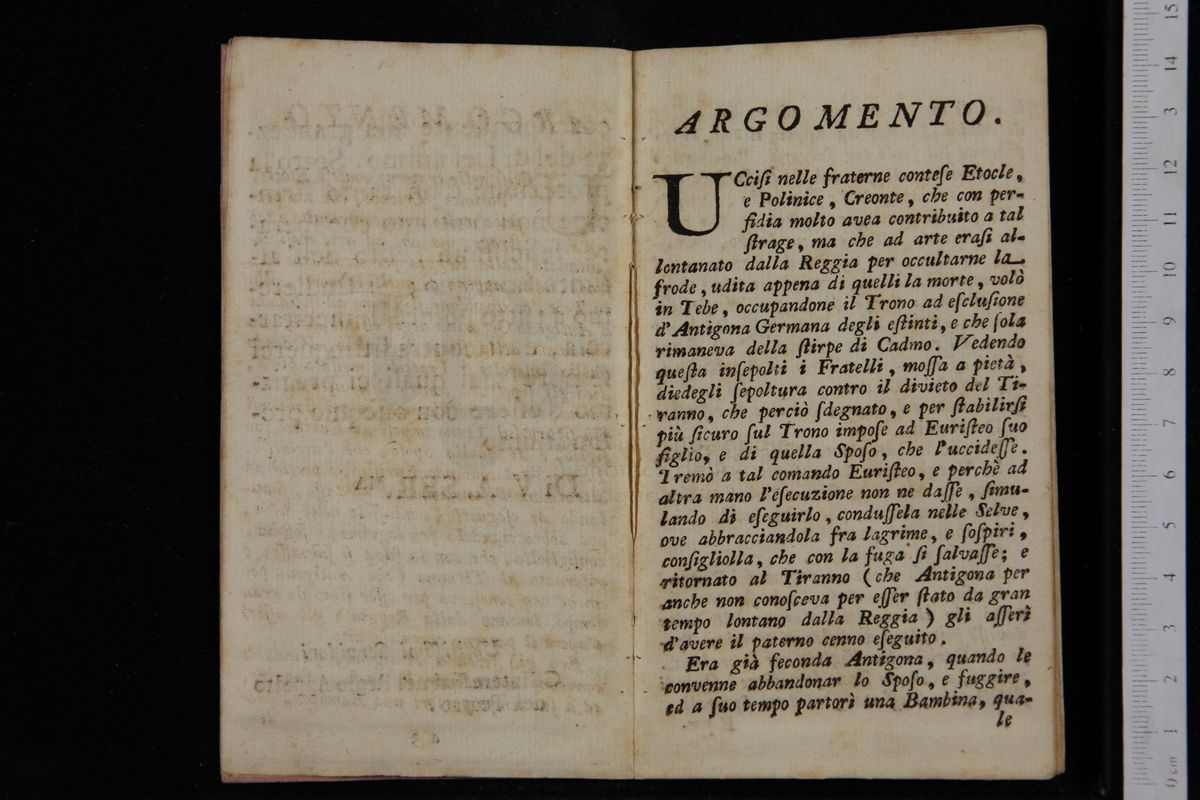 ARGOMENTO.
UCciſi nelle fraterne conteſe Etocle,
e Polinice, Creonte, che con per-
fidia molto avea contribuito a tal
ſtrage, ma che ad arte eraſi al-
lontanato dalla Reggia per occultarne la
frode, udita appena di quelli la morte, volò
in Tebe, occupandone il Trono ad eſcluſione
d'Antigona Germana degli eſtinti, e che ſola
rimaneva della ſtirpe di Cadmo. Vedendo
queſta inſepolti i Fratelli, moſſa a pietà,
diedegli ſepoltura contro il divieto del Ti-
ranno, che perciò ſdegnato, e per ſtabilirſi
più ſicuro ſul Trono impoſe ad Euriſteo ſuo
figlio, e di quella Spoſo, che l'uccideſſe.
Tremò a tal comando Euriſteo, e perchè ad
altra mano l'eſecuzione non ne daſſe, ſimu-
lando di eſeguirlo, conduſſela nelle Selve,
ove abbracciandola fra lagrime, e ſoſpiri,
conſigliolla, che con la fuga ſi ſalvaſſe; e
ritornato al Tiranno (che Antigona per
anche non conoſceva per eſſer ſtato da gran
tempo lontano dalla Reggia) gli aſſerì
d'avere il paterno cenno eſeguito.
Era già feconda Antigona, quando le
convenne abbandonar lo Spoſo, e fuggire,
ed a ſuo tempo partorì una Bambina, qua-
le
15
14
13
12
11
10
9
8
7
6
5
4
3
2
1
0 cm